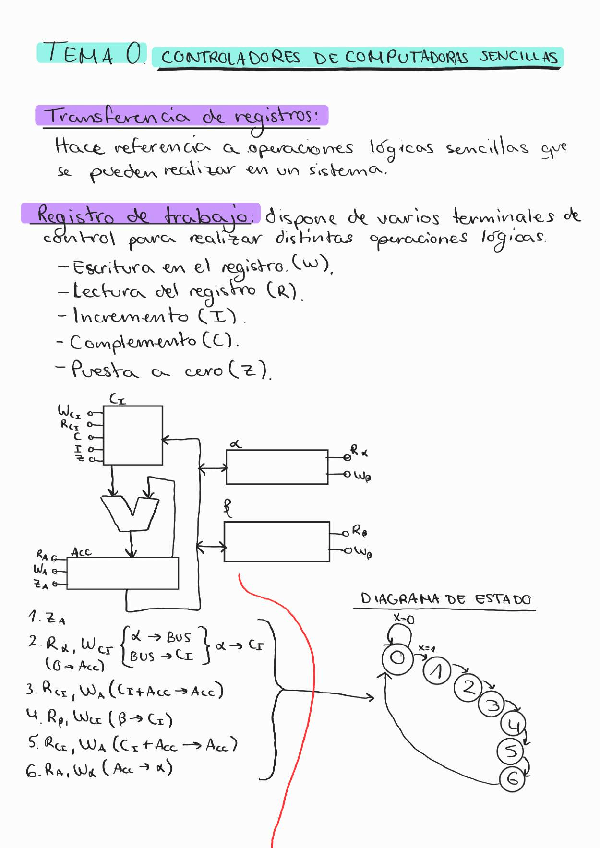 TEMA 0. CONTROLADORES DE COMPUTADORAS SENCILLAS
Transferencia de registros:
Hace referencia a operaciones lógicas sencillas que
se pueden realizar en un sistema.
Registro de trabajo. dispone de varios terminales de
control para realizar distintas operaciones lógicas.
- Escritura en el registro. (W).
- Lectura del registro (R).
- Incremento (I).
- Complemento (C).
- Puesta a cero (Z).
CI
WCI
RCI
C
I
Z
α
Rα
Wβ
β
Rβ
Wβ
ACC
RA
WA
ZA
DIAGRAMA DE ESTADO
X=0
X=1
0
1
2
3
4
5
6
1. ZA
2. Rα, WCI { α → BUS
BUS → CI } α → CI
(β → Acc)
3. RCI, WA (CI+Acc → Acc)
4. Rβ, WCI (β → CI)
5. RCI, WA (CI + Acc → Acc)
6. RA, Wα (Acc → α)